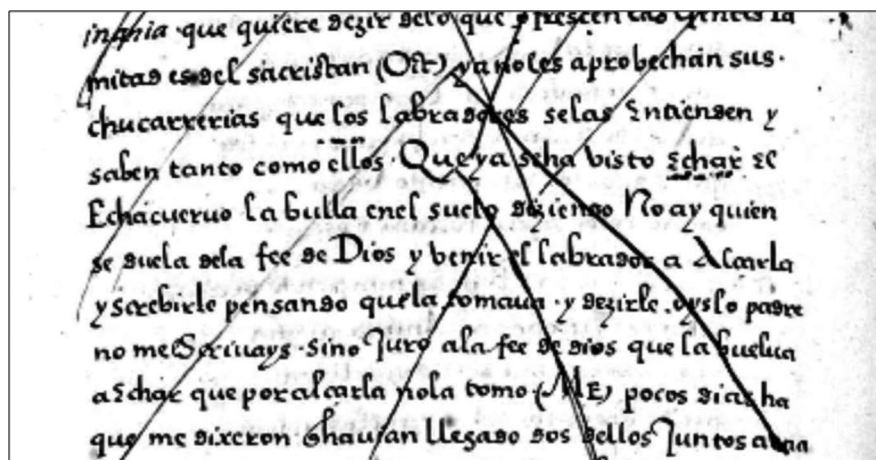 inania · que quiere dezir delo que ofrescen las gentes la
mitad es del sacristan (Oct) ya no les aprobechan sus ·
chucarrerias que los labradores selas Entienden y
saben tanto como ellos · Que ya seha visto Echar El
Echacueruo la bulla enel suelo diziendo No ay quien
se duela dela fee de Dios y venir el labrador a Alcarla
y screbirle pensando quela tomaua · y dezirle . oyslo padre
no me Scriuays · sino Juro ala fee de dios que la buelua
a Echar que por alcarla nola tomo (ME) pocos dias ha
que me dixeron q hauian llegado dos dellos Juntos a